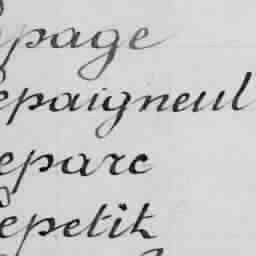 epage
epaigneul
eparc
epetit